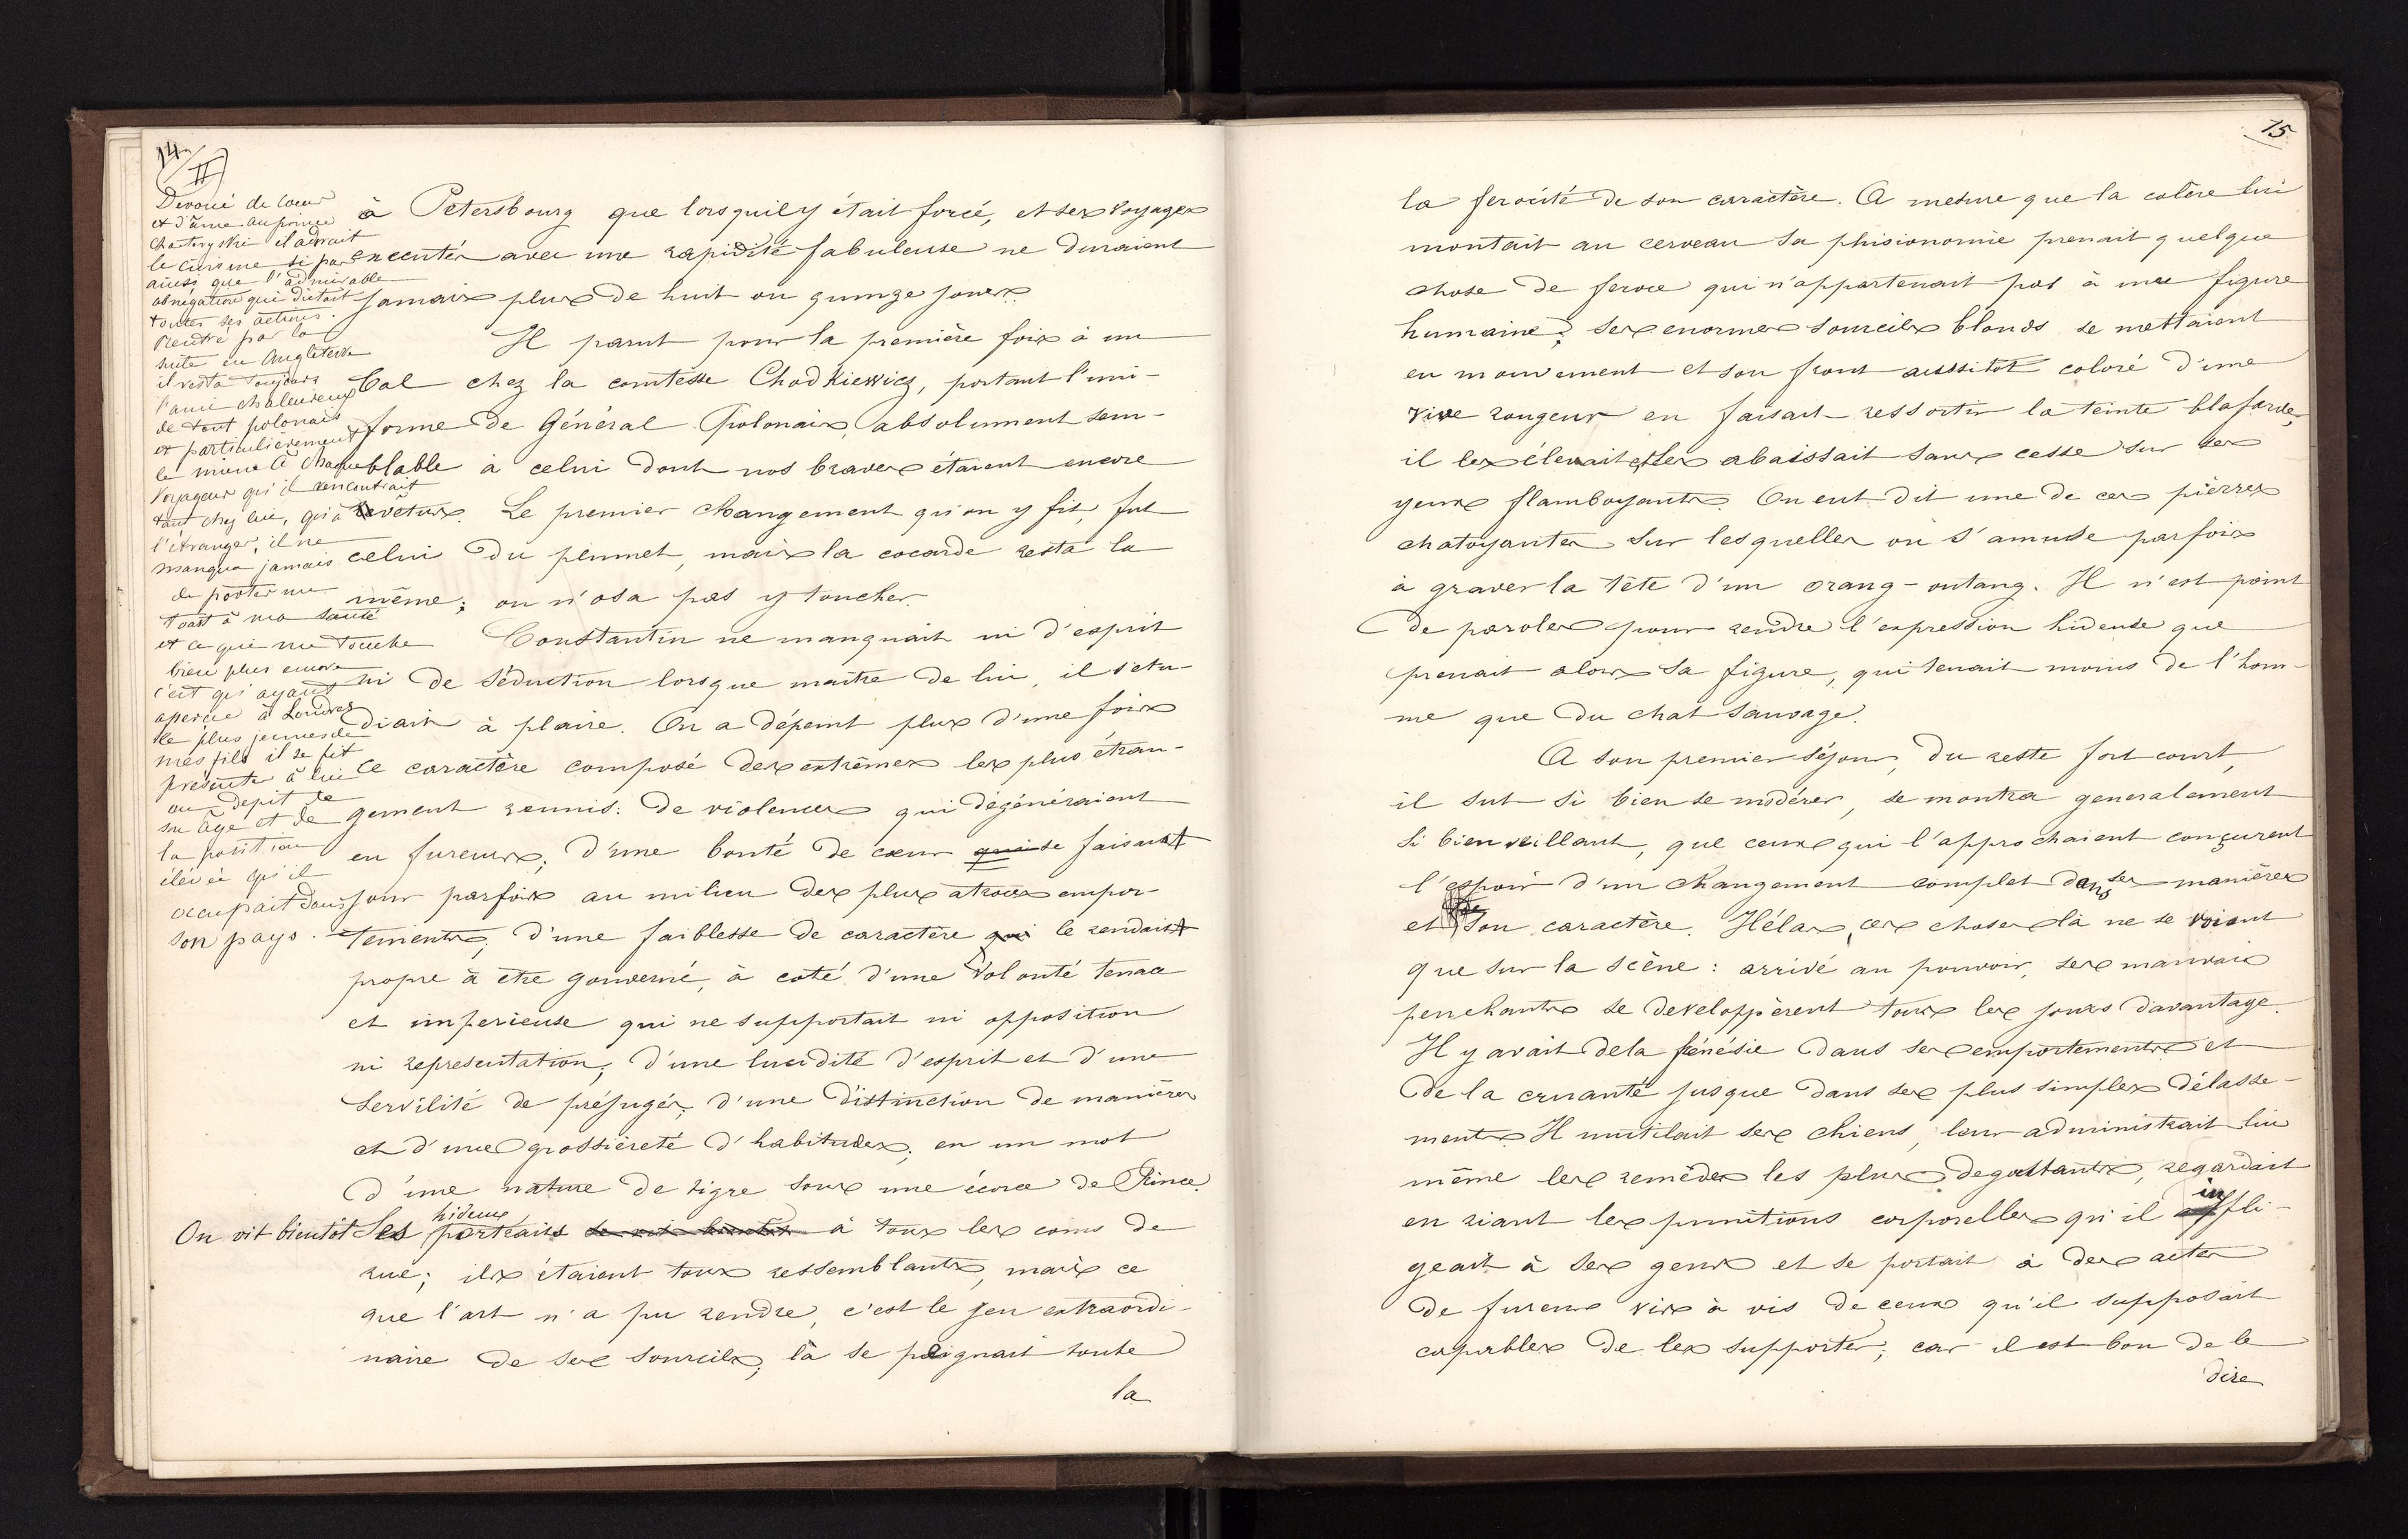 14
II
Dévoué de coeur
et d'âme au prince
Chartoryski il admirait
le civisme si pur
ainsi que l'admirable
abnégation qui dictait
toutes ses actions.
Rentré par la
suite en Angleterre
il resta toujours
l'ami chaleureux
de tout polonais
et particulièrement
le mien à chaque
voyageur qu'il rencontrait
tant chez lui, qu'à
l'étranger, il ne
manqua jamais
de porter un
toast à ma santé
et ce qui me touche
bien plus encore
c'est qu'ayant
aperçu à Londres
le plus jeune de
mes fils il se fit
presenter à lui
en depit de
son âge et de
la position
élévée qu'il
occupait dans
son pays.
à Petersbourg que lorsquil y était forcé, et ses voyages
executés avec une rapidité fabuleuse ne duraient
jamais plus de huit ou quinze jours.
Il parut pour la première fois à un
bal chez la comtesse Chodkiewicz, portant l'uni-
forme de Général Polonais, absolument sem-
blable à celui dont nos braves étaient encore
revêtus. Le premier changement qu'on y fit, fut
celui du plumet, mais la cocarde resta la
même; on n'osa pas y toucher.
Constantin ne manquait ni d'esprit
ni de séduction lorsque maître de lui, il s'etu-
diait à plaire. On a dépeint plus d'une fois
ce caractère composé des extrêmes les plus étran-
gement reunis: de violences qui dégénéraient
en fureurs; d'une bonté de cœur qui se faisant
jour parfois au milieu des plus atroces empor-
tements; d'une faiblesse de caractère qui le rendait
propre à être gouverné, à coté d'une volonté tenace
et imperieuse qui ne supportait ni opposition
ni representation; d'une lucidité d'esprit et d'une
servilité de préjugés; d'une distinction de manières
et d'une grossièreté d'habitudes; en un mot
d'une nature de tigre sous une écorce de Prince.
On vit bientôt Ses hideux portraits à tous les coins de
rue; ils étaient tous ressemblants, mais ce
que l'art n'a pu rendre, c'est le jeu extraordi-
naire de ses sourcils; là se peignait toute
la
15
la ferocité de son caractère. A mesure que la colère lui
montait au cerveau sa phisionomie prenait quelque
chose de feroce qui n'appartenait pas à une figure
humaine; ses enormes sourcils blonds se mettaient
en mouvement et son front aussitôt coloré d'une
vive rougeur en faisait ressortir la teinte blafarde;
il les élevait et les abaissait sans cesse sur ses
yeux flamboyants. On eut dit une de ces pierres
chatoyantes sur lesquelles on s'amuse parfois
à graver la tête d'un orang-outang. Il n'est point
de paroles pour rendre l'expression hideuse que
prenait alors sa figure, qui tenait moins de l'hom-
me que du chat sauvage.
A son premier séjour, du reste fort court,
il sut si bien se modérer, se montra generalement
si bienveillant, que ceux qui l'approchaient conçurent
l'espoir d'un changement complet dans ses manières
et son caractère. Hélas, ces choses là ne se voient
que sur la scène: arrivé au pouvoir, ses mauvais
penchants se developpèrent tous les jours davantage.
Il y avait dela frénésie dans ses emportements et
de la cruauté jusque dans ses plus simples délasse-
ments. Il mutilait ses chiens, leur administrait lui
même les remèdes les plus degoutants, regardait
en riant les punitions corporelles qu'il infli-
geait à ses gens et se portait à des actes
de fureur vis à vis de ceux qu'il supposait
capables de les supporter; car il est bon de le
dire